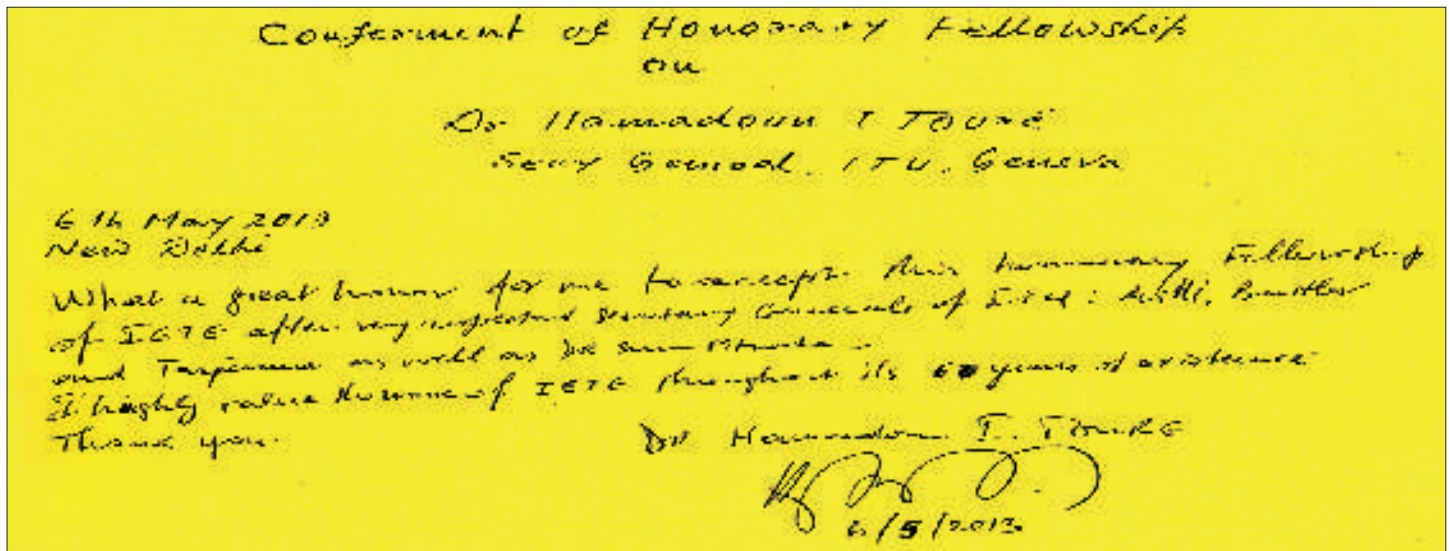 Conferment of Honorary Fellowship
on
Dr Hamadoun I Touré
Secy General, ITU, Geneva
6th May 2013
New Delhi
What a great honour for me to accept this honorary Fellowship
of IETE after very respected Secretary Generals of ITU : Butler
and Tarjanne as well as
I highly value the of IETE throughout its 60 years of existence
Thank you.
Dr Hamadoun I. TOURE
6/5/2013